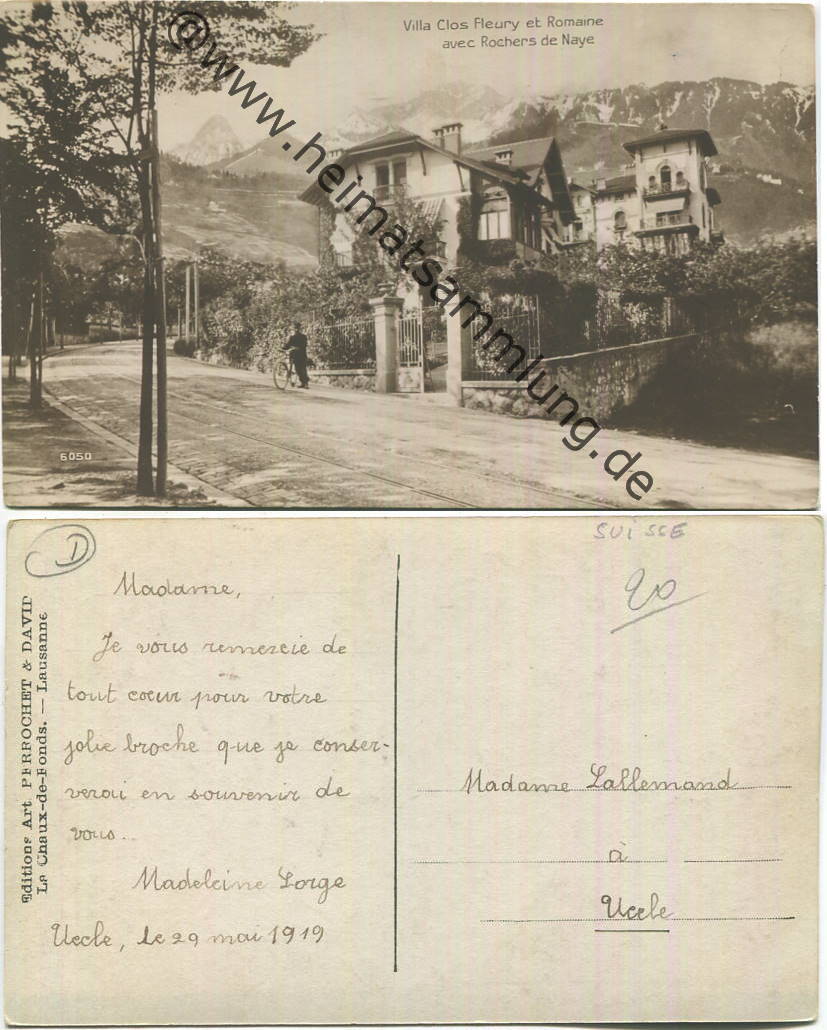 Villa Clos Fleury et Romaine
avec Rochers de Naye
©www.heimatsammlung.de
6050
D
SUISSE
20
Editions Art PERROCHET & DAVID
La Chaux-de-Fonds. — Lausanne
Madame,
Je vous remercie de
tout coeur pour votre
jolie broche que je conser-
verai en souvenir de
vous...
Madeleine Lorge
Uccle, le 29 mai 1919
Madame Lallemand
à
Uccle